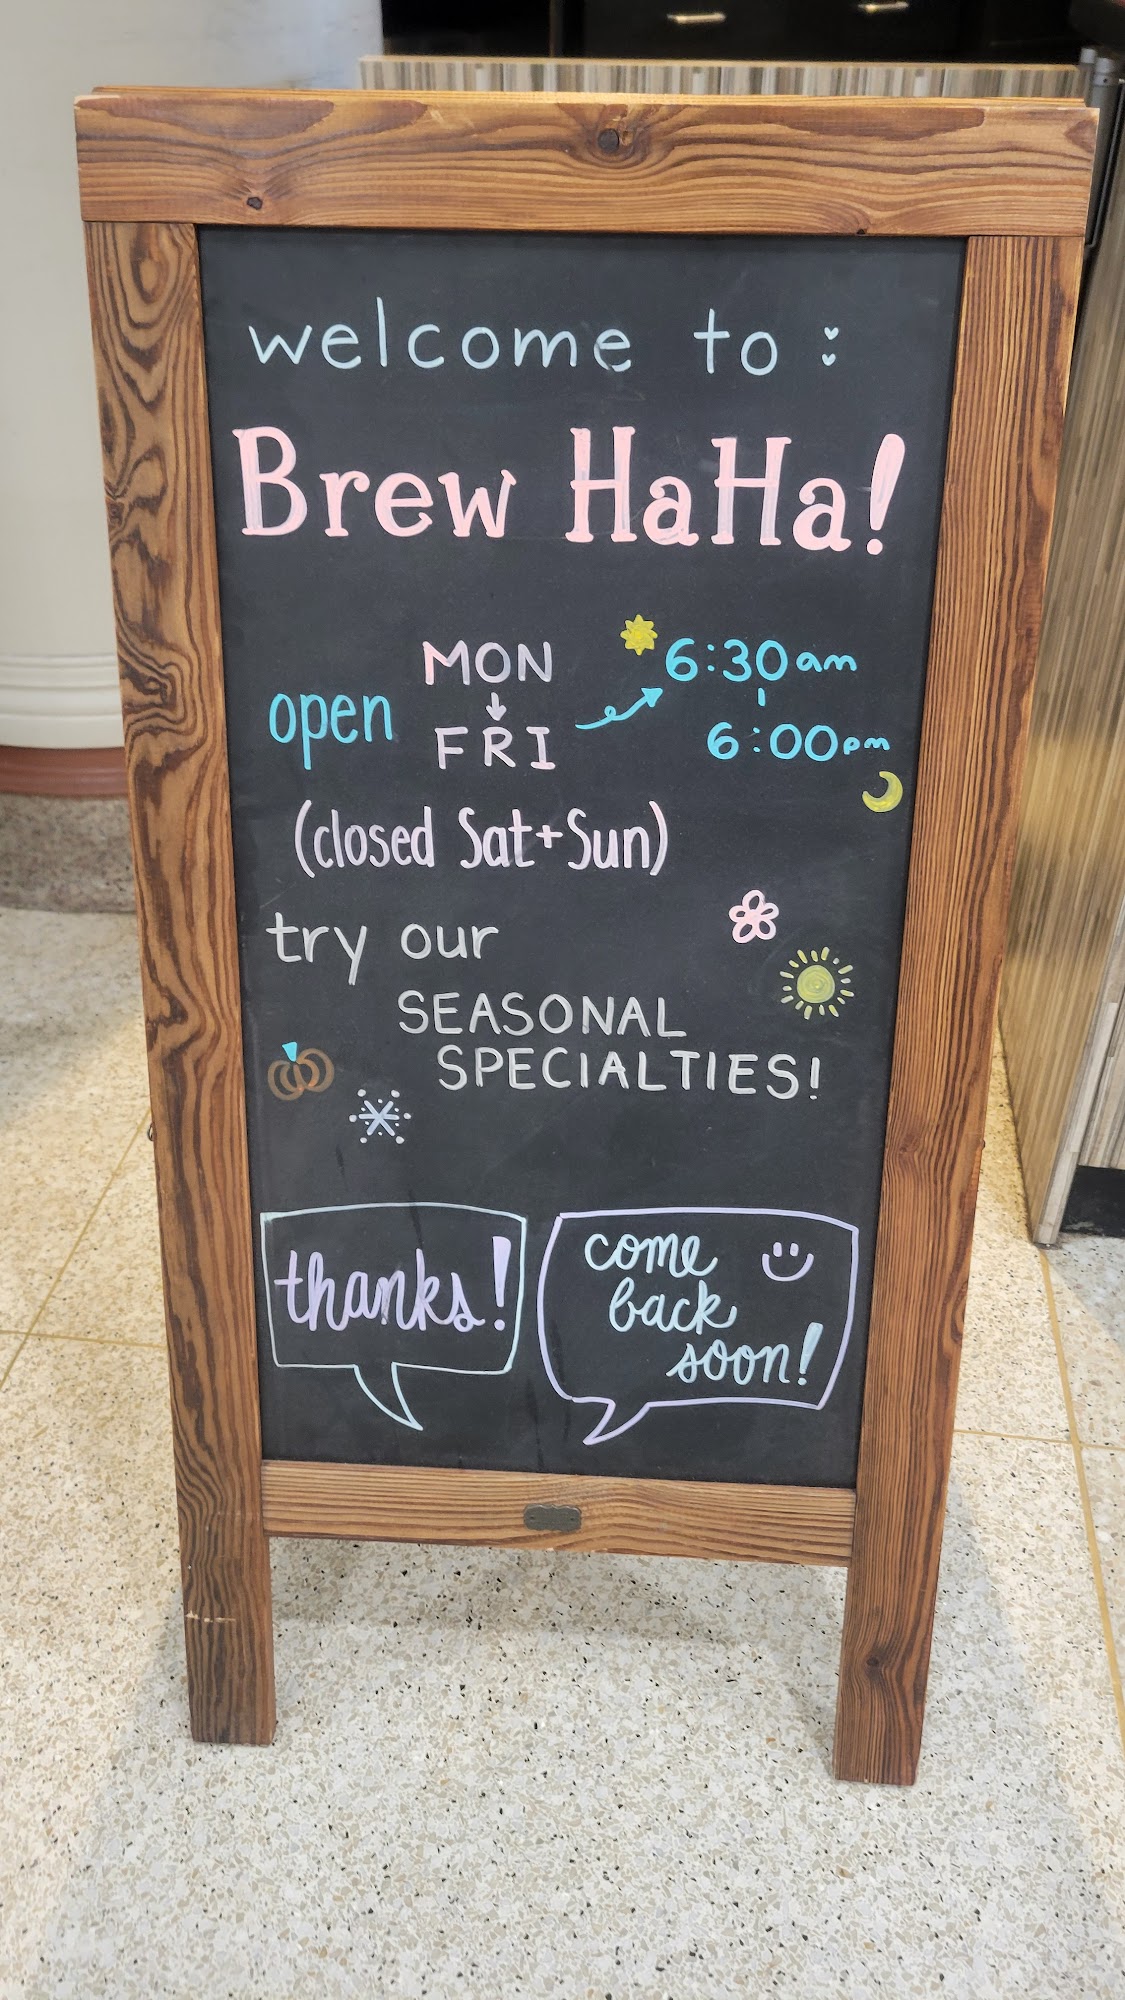 welcome to :
Brew HaHa!
open MON
↓
FRI
6:30am
-
6:00pm
(closed Sat+Sun)
try our
SEASONAL
SPECIALTIES!
thanks!
come
back
soon!